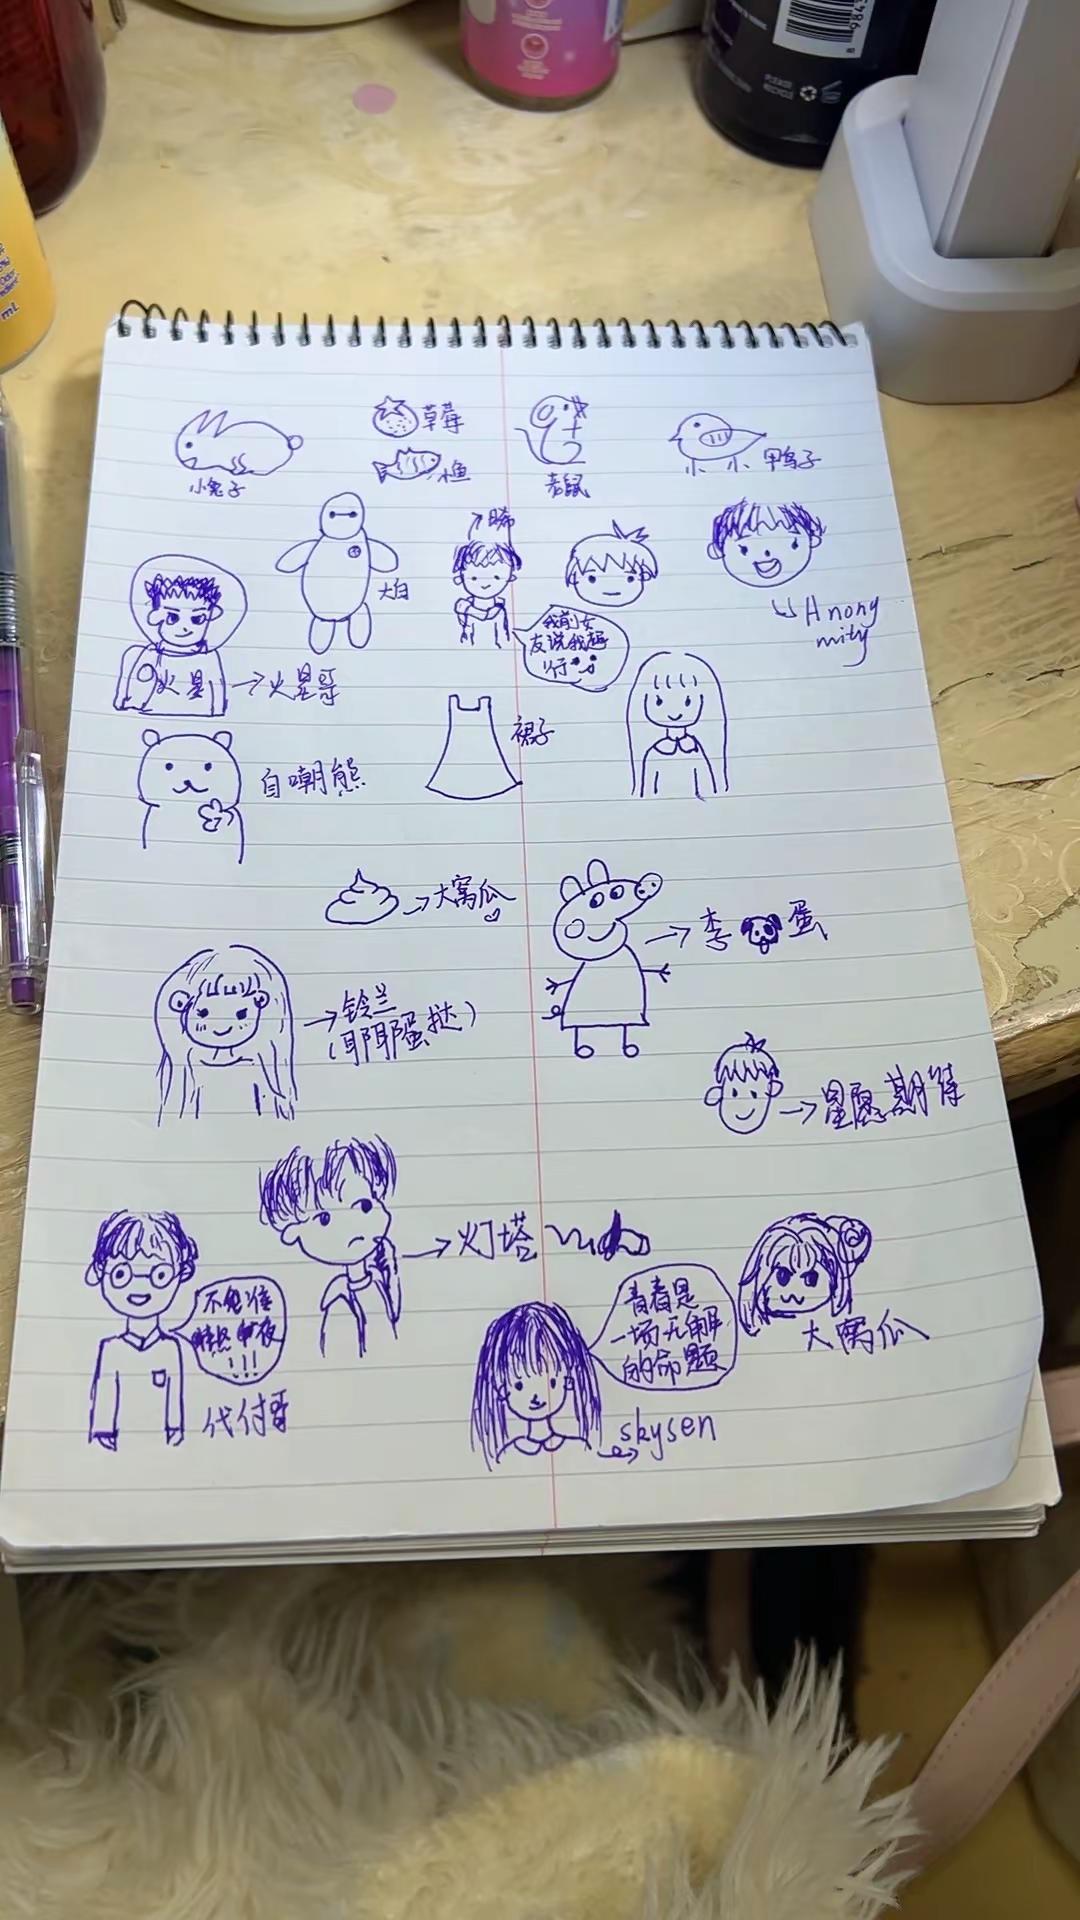 草莓
小鱼
小兔子
老鼠
小小鸭子
大白
我前女
友说我挺
行
Anony
mity
火星
火星哥
裙子
自嘲熊
大窝瓜
李
蛋
铃兰
(耶耶蛋挞)
星愿期待
灯塔
不允许
青春是
一场无解
的命题
大窝瓜
代付哥
skysen
PLEASE
RECYCLE
mL